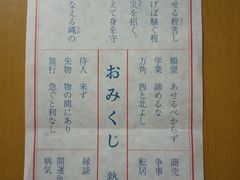 せる程苦し
げば騒ぐ程
災を招く。
えて身を守
なえる縄の
願望 あせるべからず
学業 諦めるな
方角 西と北よし
待人 来ず
失物 物の間にあり
旅行 急ぐと利なし
おみくじ
商売
争事
転居
縁談
病気